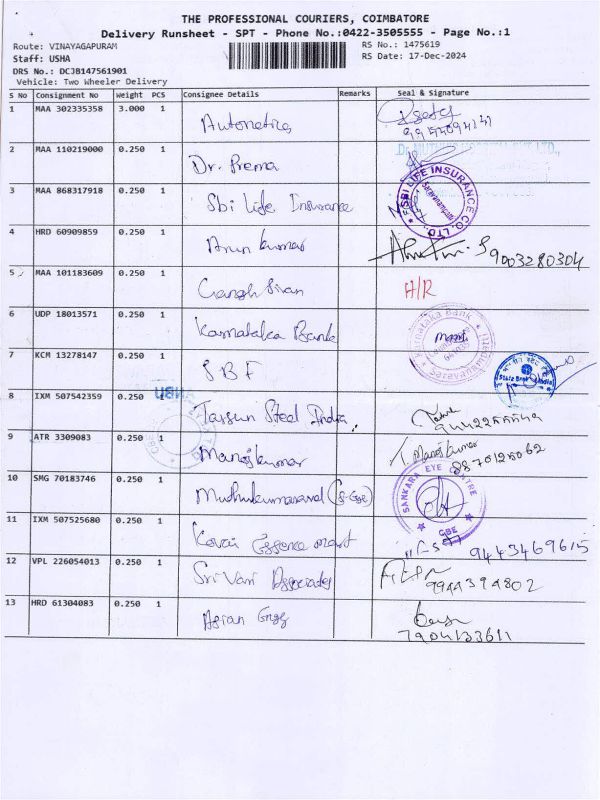 THE PROFESSIONAL COURIERS, COIMBATORE
Delivery Runsheet - SPT - Phone No.:0422-3505555 - Page No.:1
Route: VINAYAGAPURAM
RS No.: 1475619
Staff: USHA
RS Date: 17-Dec-2024
DRS No.: DCJB147561901
Vehicle: Two Wheeler Delivery
S No Consignment No Weight PCS Consignee Details Remarks Seal & Signature
1 MAA 302335358 3.000 1 Autometics
2 MAA 110219000 0.250 1 Dr. Prema
3 MAA 868317918 0.250 1 Sbi Life Insurance
SBI LIFE INSURANCE CO. LTD.
4 HRD 60909859 0.250 1 Arun kumar
9003280304
5 MAA 101183609 0.250 1 H/R
6 UDP 18013571 0.250 1 Karnataka Bank
Karnataka Bank
7 KCM 13278147 0.250 1 SBF
State Bank of India
8 IXM 507542359 0.250 1 Tarsun Steel India
9 ATR 3309083 0.250 1 Manojkumar
T. Manojkumar
8870125062
10 SMG 70183746 0.250 1
SANKARA EYE CENTRE
CBE
11 IXM 507525680 0.250 1 Kovai Essence mart
9443469615
12 VPL 226054013 0.250 1 Sri Vari Associates
9944394802
13 HRD 61304083 0.250 1 Asian Engg
7904133611